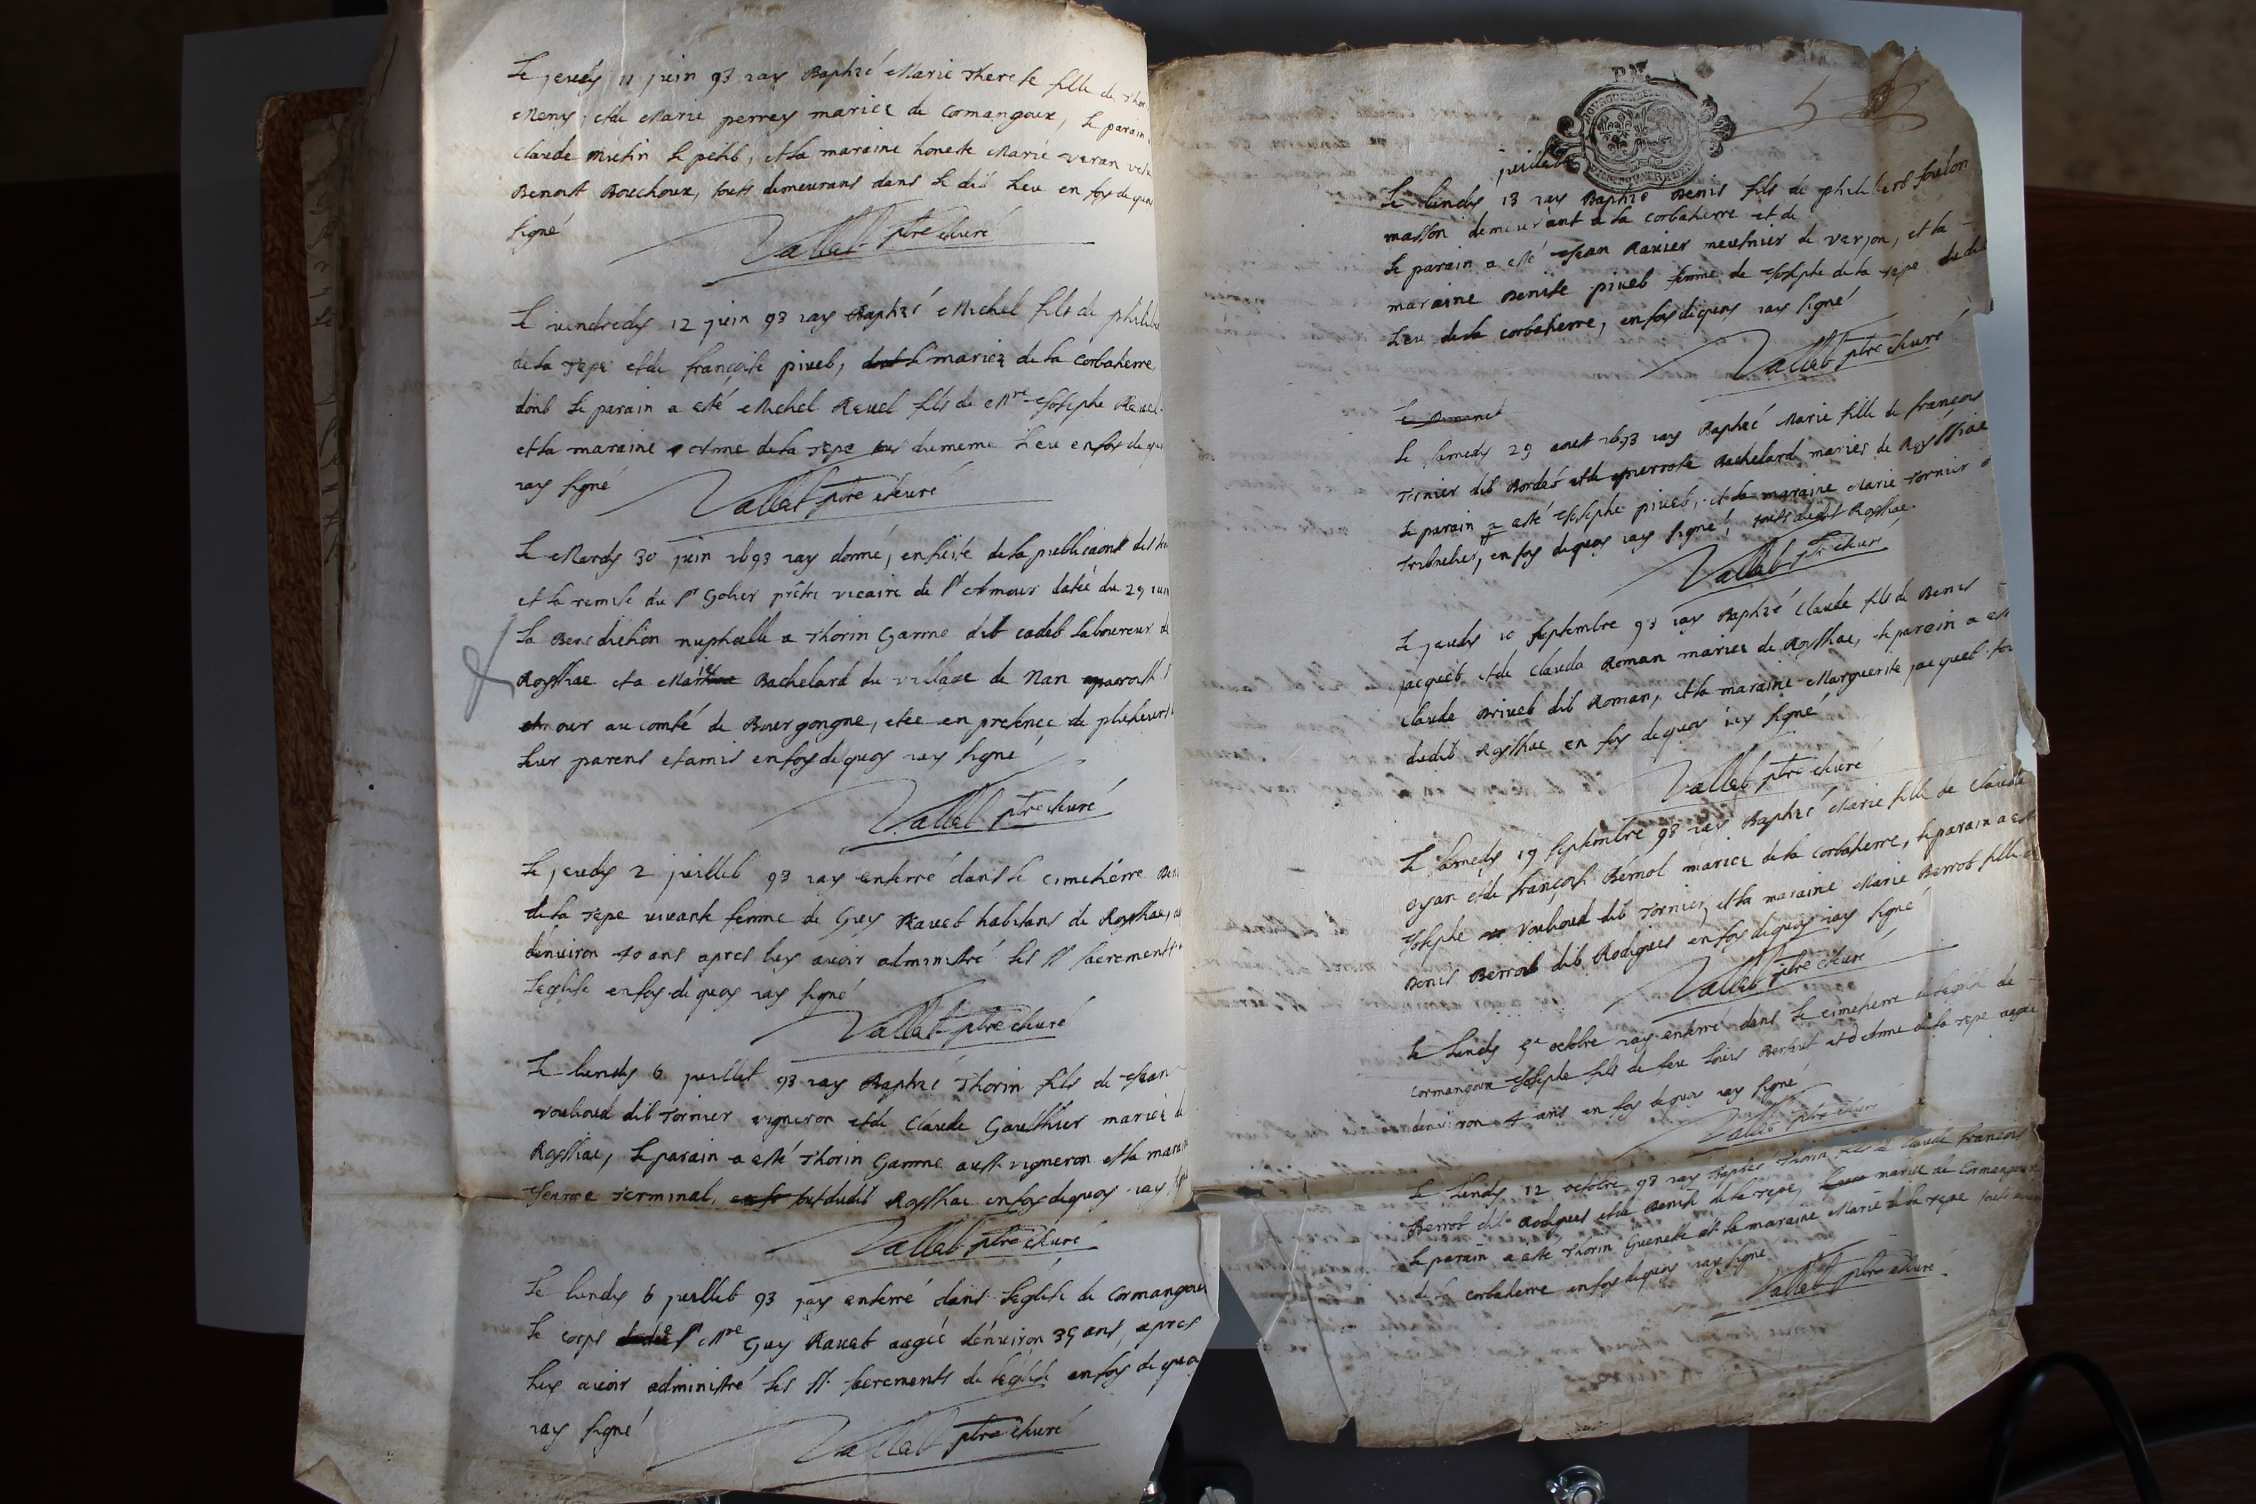 Le jeudy 11 juin 93 iay Baptisé Marie Therese fille de
Meny, et de Marie perrey mariez de Cormangoux, le parain
Claude Mutin le petit, et la maraine honeste Marie varan
Benoist Bouchoux, touts demeurans dans le dit Lieu en foy de quoy
signé
Vallet ptre Curé
Le vendredy 12 juin 93 iay Baptisé Michel fils de
de la Tepe et de françoise pivet, mariez de la Corbatierre
dont le parain a esté Michel Ravet fils de Mre Josephe
et la maraine Anne de la Tepe du meme Lieu en foy de
iay signé
Vallet ptre Curé
Le Mardy 30 juin 1693 iay donné, en suite de la publicaon des
et la remise du Sr Goher prêtre vicaire de St Amour datée du 29 juin
La Benediction nuptialle a Thorin Game dit cadet Laboureur de
Royssiac et a Marie Bachelard du village de Nan
Amour au comté de Bourgongne, et ce en presence de plusieurs
Leurs parens et amis en foy de quoy iay signé
Vallet ptre Curé
Le jeudy 2 juillet 93 iay enterré dans le cimetierre
de la Tepe vivante femme de Guy Ravet habitans de Royssiac,
d'environ 40 ans apres luy avoir administré les SS sacrements
L'eglise en foy de quoy iay signé
Vallet ptre Curé
Le lundy 6 juillet 93 iay Baptisé Thorin fils de Jean
Voulioud dit Tornier vigneron et de Claude Gauthier mariez de
Royssiac, le parain a esté Thorin Game aussi vigneron et la
Terminal, dudit Royssiac en foy de quoy iay
Vallet ptre Curé
Le lundy 6 juillet 93 jay enterré dans l'eglise de Cormangoux
Le corps Mre Guy Ravet aagée d'environ 35 ans, apres
Luy avoir administré les SS. sacrements de l'eglise en foy de quoy
iay signé
Vallet ptre Curé
P.N.
juillet
Le lundy 13 iay Baptisé Denis fils de philibert
masson demeurant a la Corbatierre et de
Le parain a esté Jean Ravier meusnier de verjon, et la
maraine Denise pivet femme de Josephe de la Tepe
Lieu de la Corbatierre, en foy de quoy iay signé
Vallet ptre Curé
Le Samedy 29 aoust 1693 iay Baptisé Marie fille de françois
Tornier dit Bordat et de pierrette Bachelard mariez de Royssiac
Le parain a esté Josephe pivet, et la maraine Marie Tornier
en foy de quoy iay signé touts dudit Royssiac.
Vallet ptre Curé
Le jeudy 10 Septembre 93 iay Baptisé Claude fils de Denis
jacquet et de Clauda Roman mariez de Royssiac, le parain a esté
Claude Brivet dit Roman, et la maraine Marguerite jacquet
dudit Royssiac en foy de quoy iay signé
Vallet ptre Curé
Le Samedy 19 Septembre 93 iay Baptisé Marie fille de Claude
oyan et de françoise Bernol mariez de la Corbatierre, le parain a esté
Josephe Voulioud dit Tornier, et la maraine Marie Berrot fille de
Denis Berrot dit Rodigues en foy de quoy iay signé
Vallet ptre Curé
Le Lundy 5e octobre iay enterré dans le cimetierre de
Cormangoux Josephe fils de feu Louis et d'Anne de la Tepe aagée
d'environ 4 ans en foy de quoy iay signé
Vallet ptre Curé
Le Lundy 12 octobre 93 iay Baptisé Thorin fils de Claude françois
Berrot dit Rodigues et de Denise de la Tepe, mariez de Cormangoux
Le parain a esté Thorin Guenette et la maraine Marie de la Tepe touts
de la Corbatierre en foy de quoy iay signé
Vallet ptre Curé